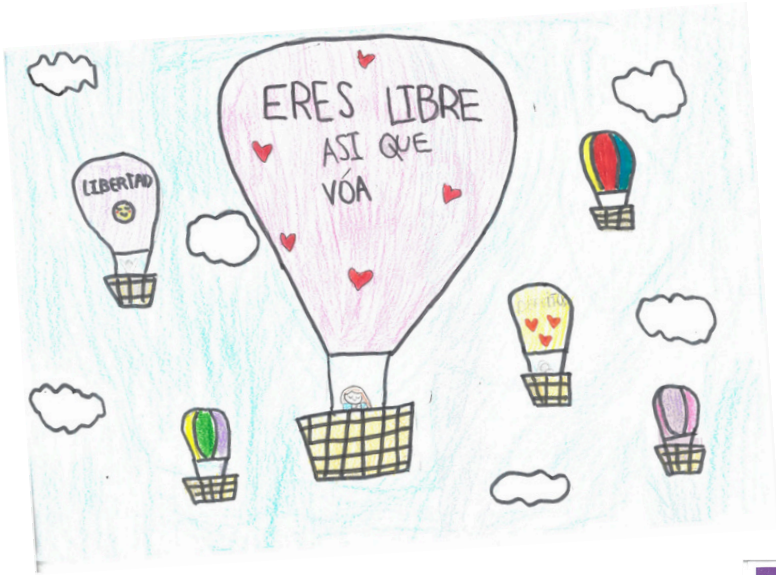 ERES LIBRE
ASI QUE
VÓA
LIBERTAD